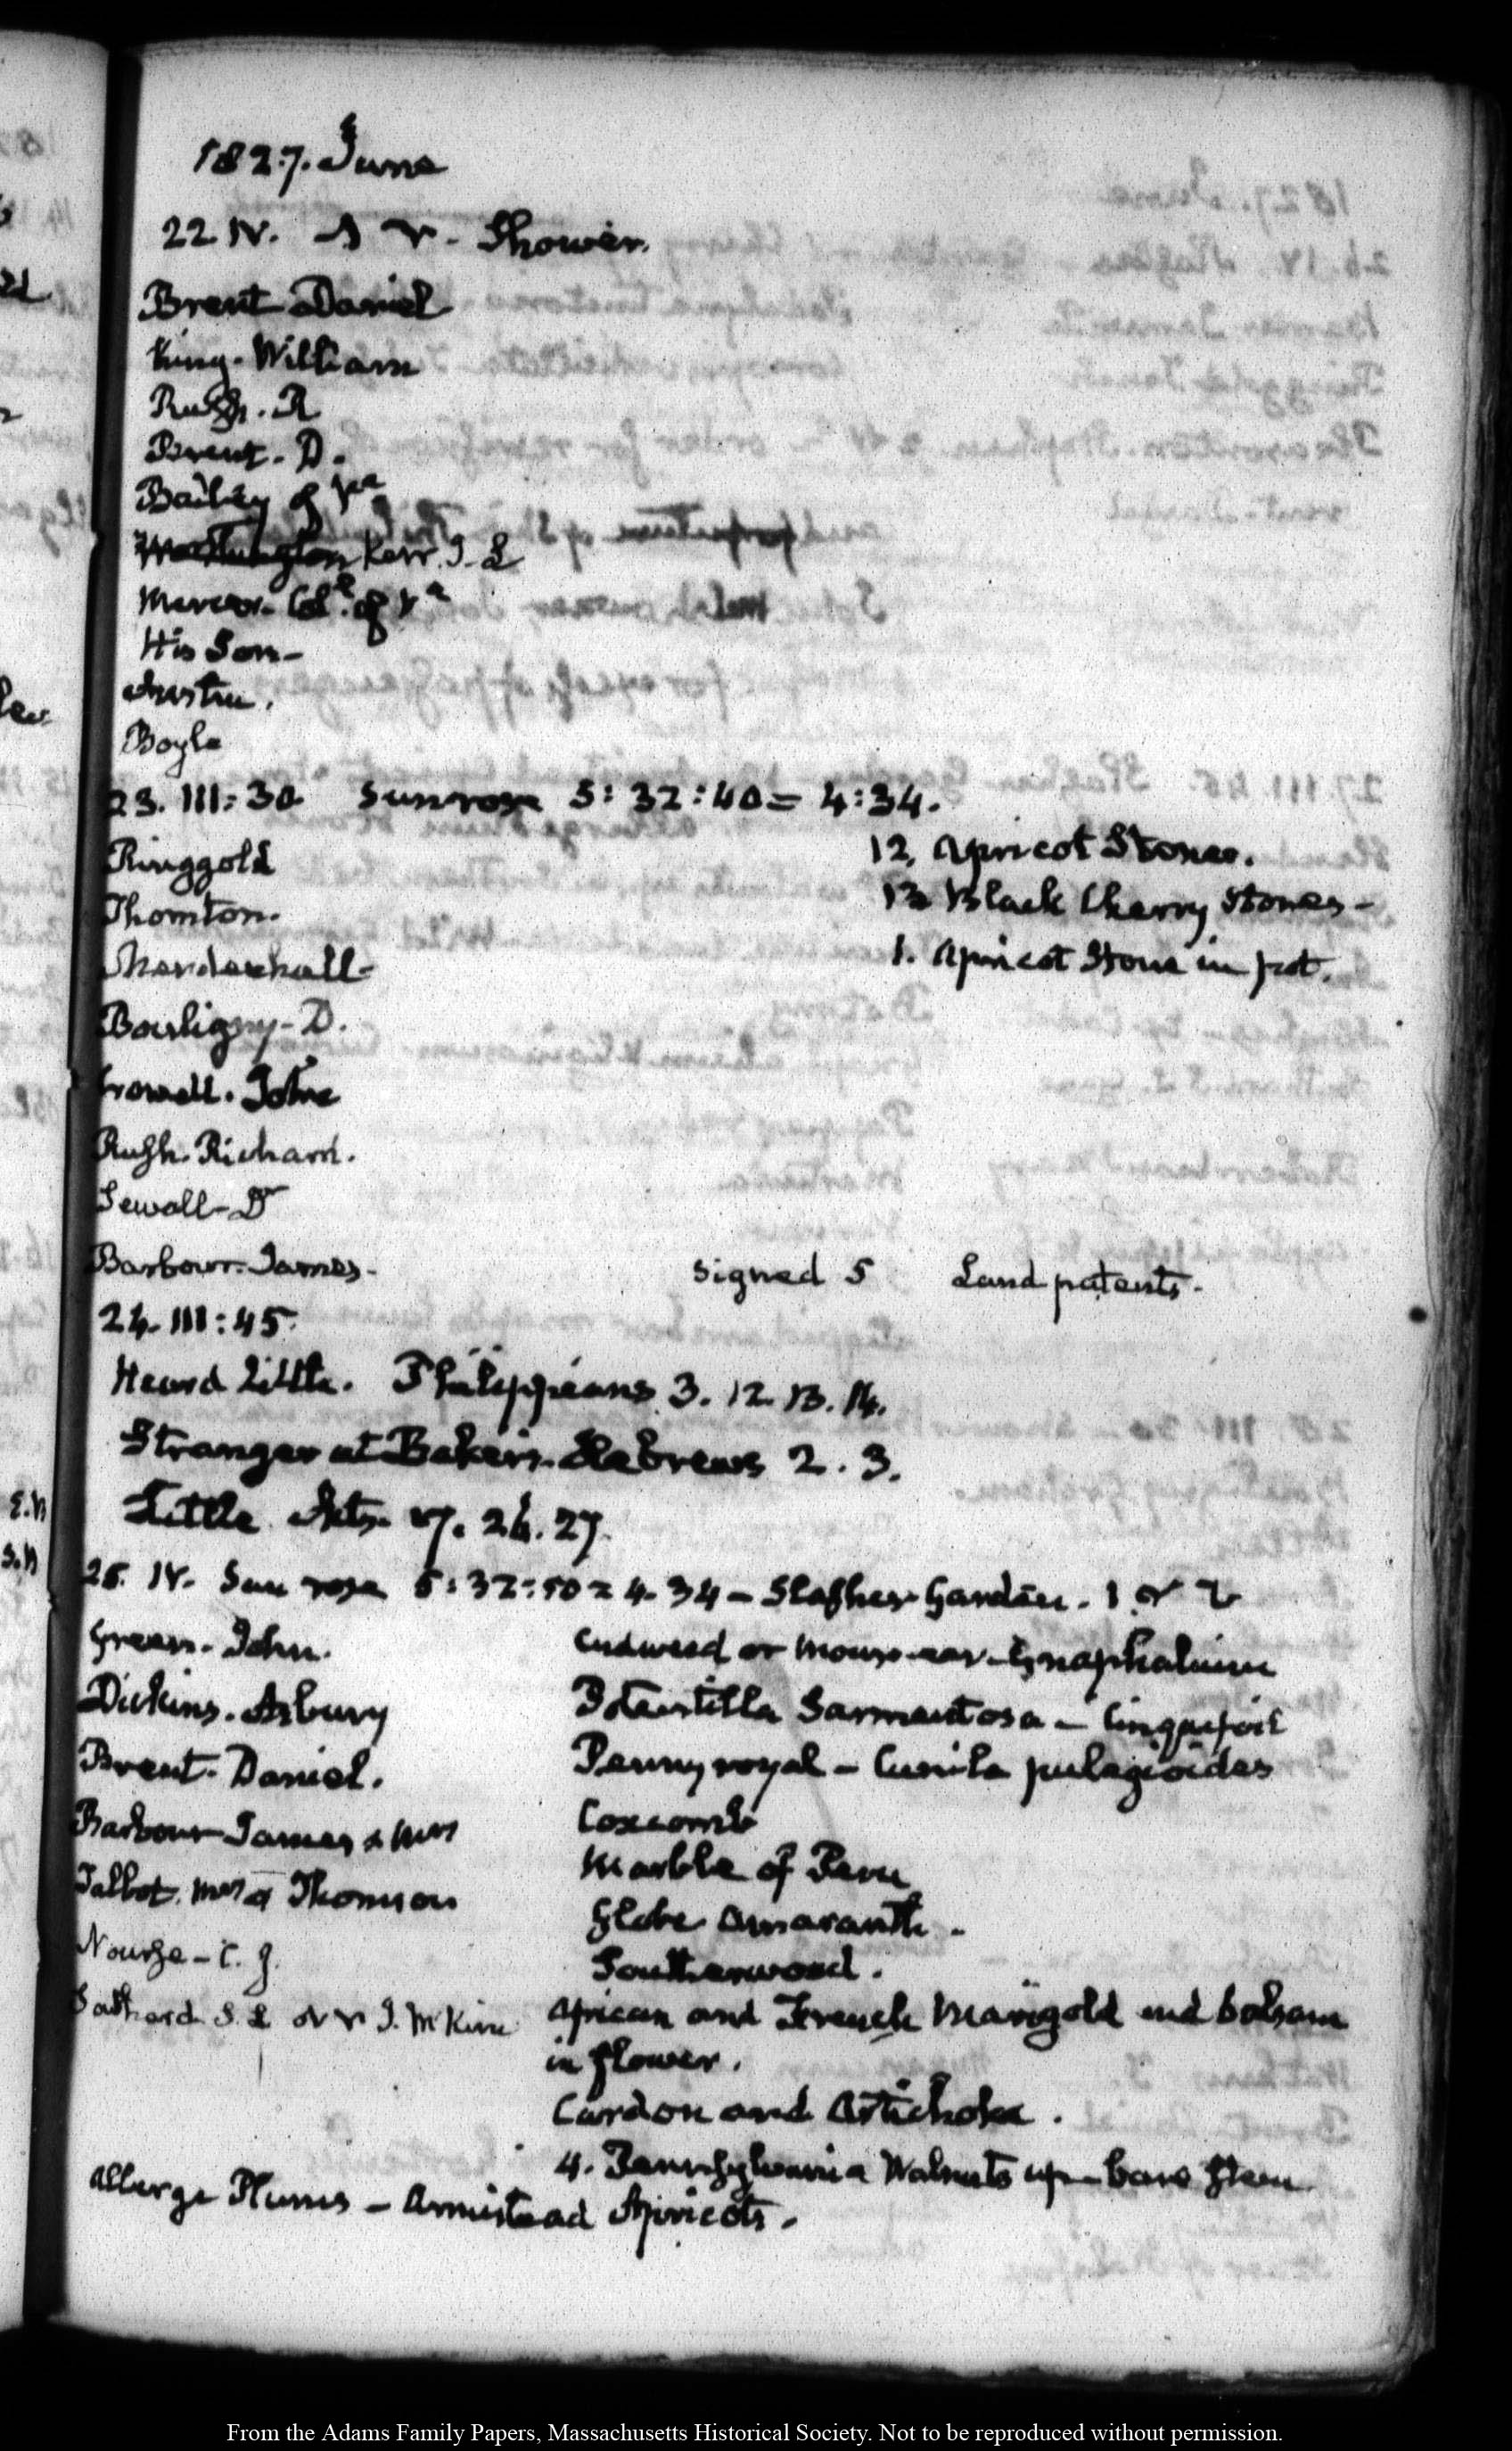 1827. June
22 IV. Shower.
Brent Daniel
King. William
Rush. R
Brent. D.
Bailey of Va
Worthington Kerr. J. L
Mercer. Col. of Va
His Son-
Austin.
Boyle
23. III: 30. Sun rose 5: 32: 40 = 4: 34.
Ringgold
12. Apricot Stones.
Thornton.
13 Black Cherry Stones-
Mendenhall-
1. Apricot Stone in pot.
Bouligny- D.
Crowell. John
Rush. Richard.
Sewall- D
Barbour. James-
signed 5 Land patents.
24. III: 45.
Heard Little. Philippians 3. 12. 13. 14.
Stranger at Baker's. Hebrews 2. 3.
Little. Acts. 17. 26. 27.
25. IV. Sun rose 5: 32: 50 = 4. 34 - Garden. 1.
Green. John.
Cudweed or Mouse-ear. Gnaphalium
Dickins. Asbury
Potentilla Sarmentosa - Cinquefoil
Brent. Daniel.
Penny royal - Cunila pulegioides
Coxcomb
Barbour James & Mrs
Marble of Peru
Talbot. Mrs & Thomson
Globe Amaranth -
Nourse - C. J.
Southernwood.
Southard S. L. J. McKim
African and French Marigold and balsam
in flower.
Cardon and Artichoke.
4. Pennsylvania Walnuts up - bare stem
Alberge Plums - Armistead Apricots.
From the Adams Family Papers, Massachusetts Historical Society. Not to be reproduced without permission.